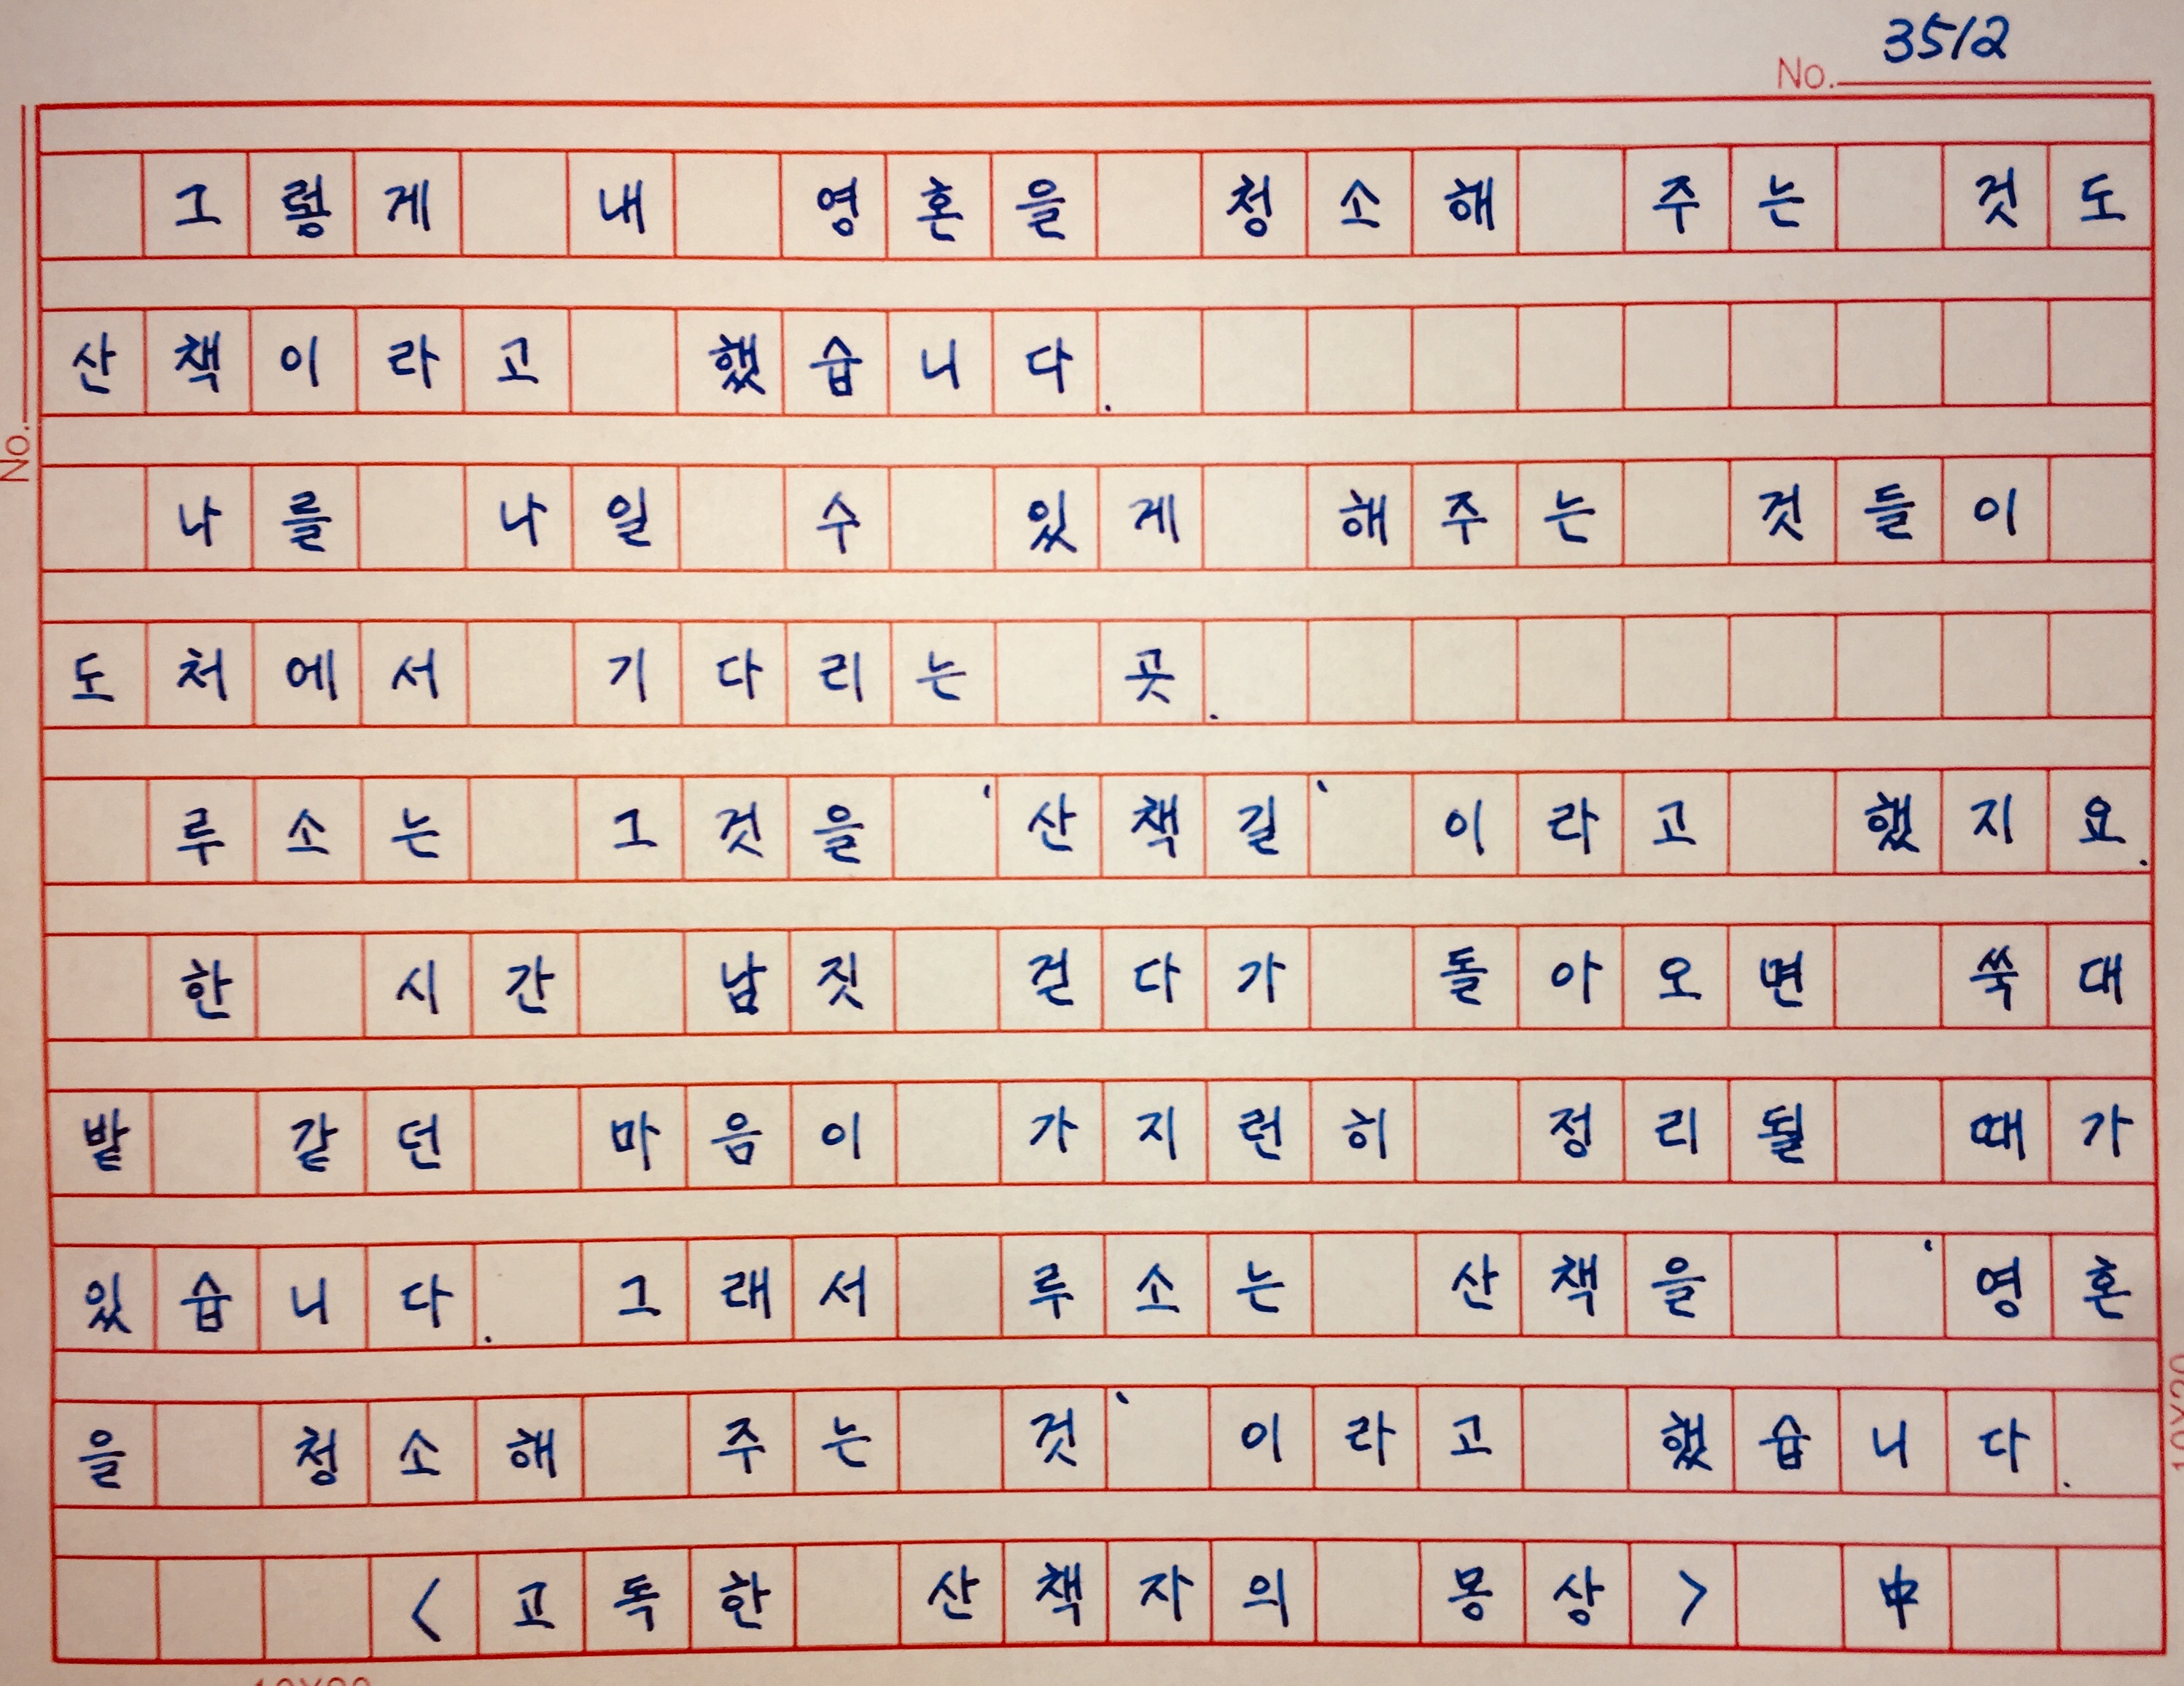 No. 3512
그렇게 내 영혼을 청소해 주는 것도
산책이라고 했습니다.
No.
나를 나일 수 있게 해주는 것들이
도처에서 기다리는 곳.
루소는 그것을 '산책길' 이라고 했지요.
한 시간 남짓 걷다가 돌아오면 쑥대
밭 같던 마음이 가지런히 정리될 때가
있습니다. 그래서 루소는 산책을 '영혼
을 청소해 주는 것' 이라고 했습니다.
<고독한 산책자의 몽상> 中